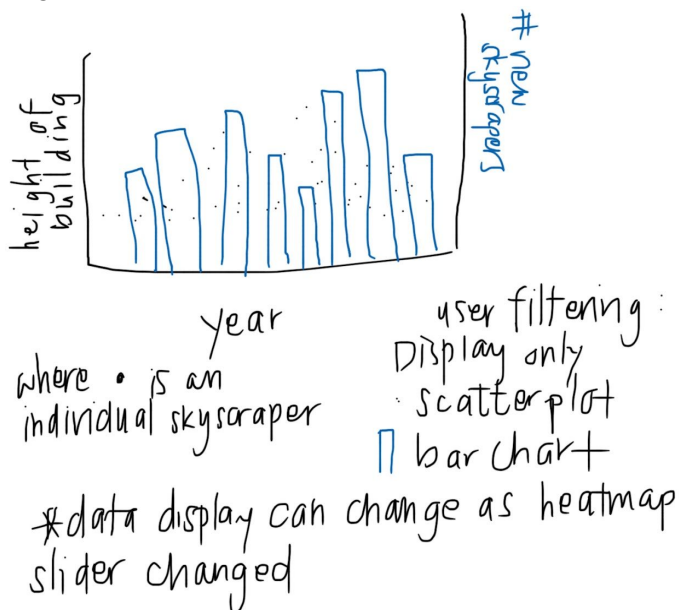 height of
building
# new
skyscrapers
year
where • is an
individual skyscraper
user filtering :
Display only
· scatterplot
bar chart
*data display can change as heatmap
slider changed